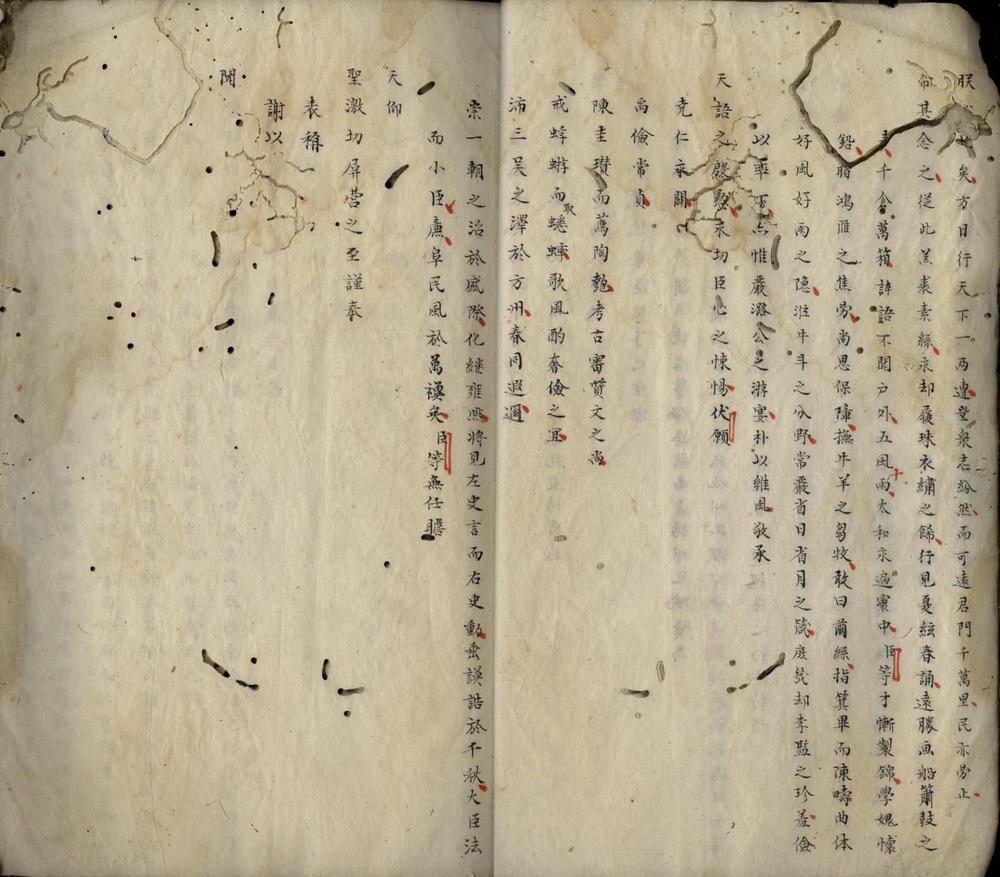 朕矣方日行天下一兩連堂衆志紛然而可遠君門千萬里民亦勞止
其念之從此羔裘素絲永却履珠衣繡之餙行見夏絃春誦遠勝画船簫鼓之
千倉萬箱誶語不聞戶外五風雨太和永遍寰中臣等才慚製錦學媿懷
鉛鴻雁之焦勞尚思保障撫牛羊之芻牧敢曰繭絲指箕畢而陳疇曲体
好風好雨之隐泩牛斗之分野常嚴省日省月之箴庻幾却李監之珍羞儉
以率下惟嚴潞公之游宴朴以雜風敬承
天語之永切臣心之悚惕伏願
堯仁永
禹儉常貞
陳圭瓚而蔿陶匏考古審質文之尚
戒蜉蝣而取蟋蟀歌風酌奢儉之冝
沛三吳之澤於方州春同遐邇
崇一朝之治於盛際化継雍熈將見左史言而右史動垂謨誥於千秋大臣法
而小臣廉阜民風於萬禩矣臣等無任瞻
天仰
聖激切屏营之至謹奉
表稱
謝以
聞